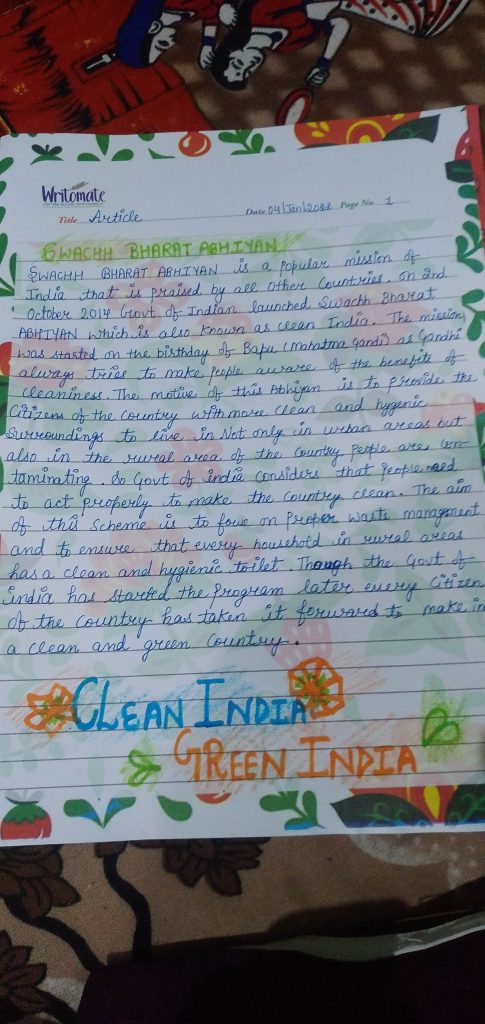 Writomate
Title Article Date 04/Jan/2022 Page No 1
SWACHH BHARAT ABHIYAN
SWACHH BHARAT ABHIYAN is a popular mission of
India that is praised by all other Countries. On 2nd
October 2014 Govt of Indian launched Swachh Bharat
ABHIYAN which is also known as clean India. The mission
was started on the birthday of Bapu (Mahatma Gandi) as Gandhi
always tries to make people aware of the benefits of
cleaniness. The motive of this Abhiyan is to provide the
Citizens of the country with more clean and hygenic
Surroundings to live in Not only in urban areas but
also in the rural area of the Country People are con-
taminating. So Govt of india Considers that People need
to act properly to make the Country clean. The aim
of this Scheme is to focus on Proper waste managment
and to ensure that every household in rural areas
has a clean and hygienic toilet. Though the Govt of
india has started the program later every Citizen
of the country has taken it forward to make in
a clean and green country.
CLEAN INDIA
GREEN INDIA